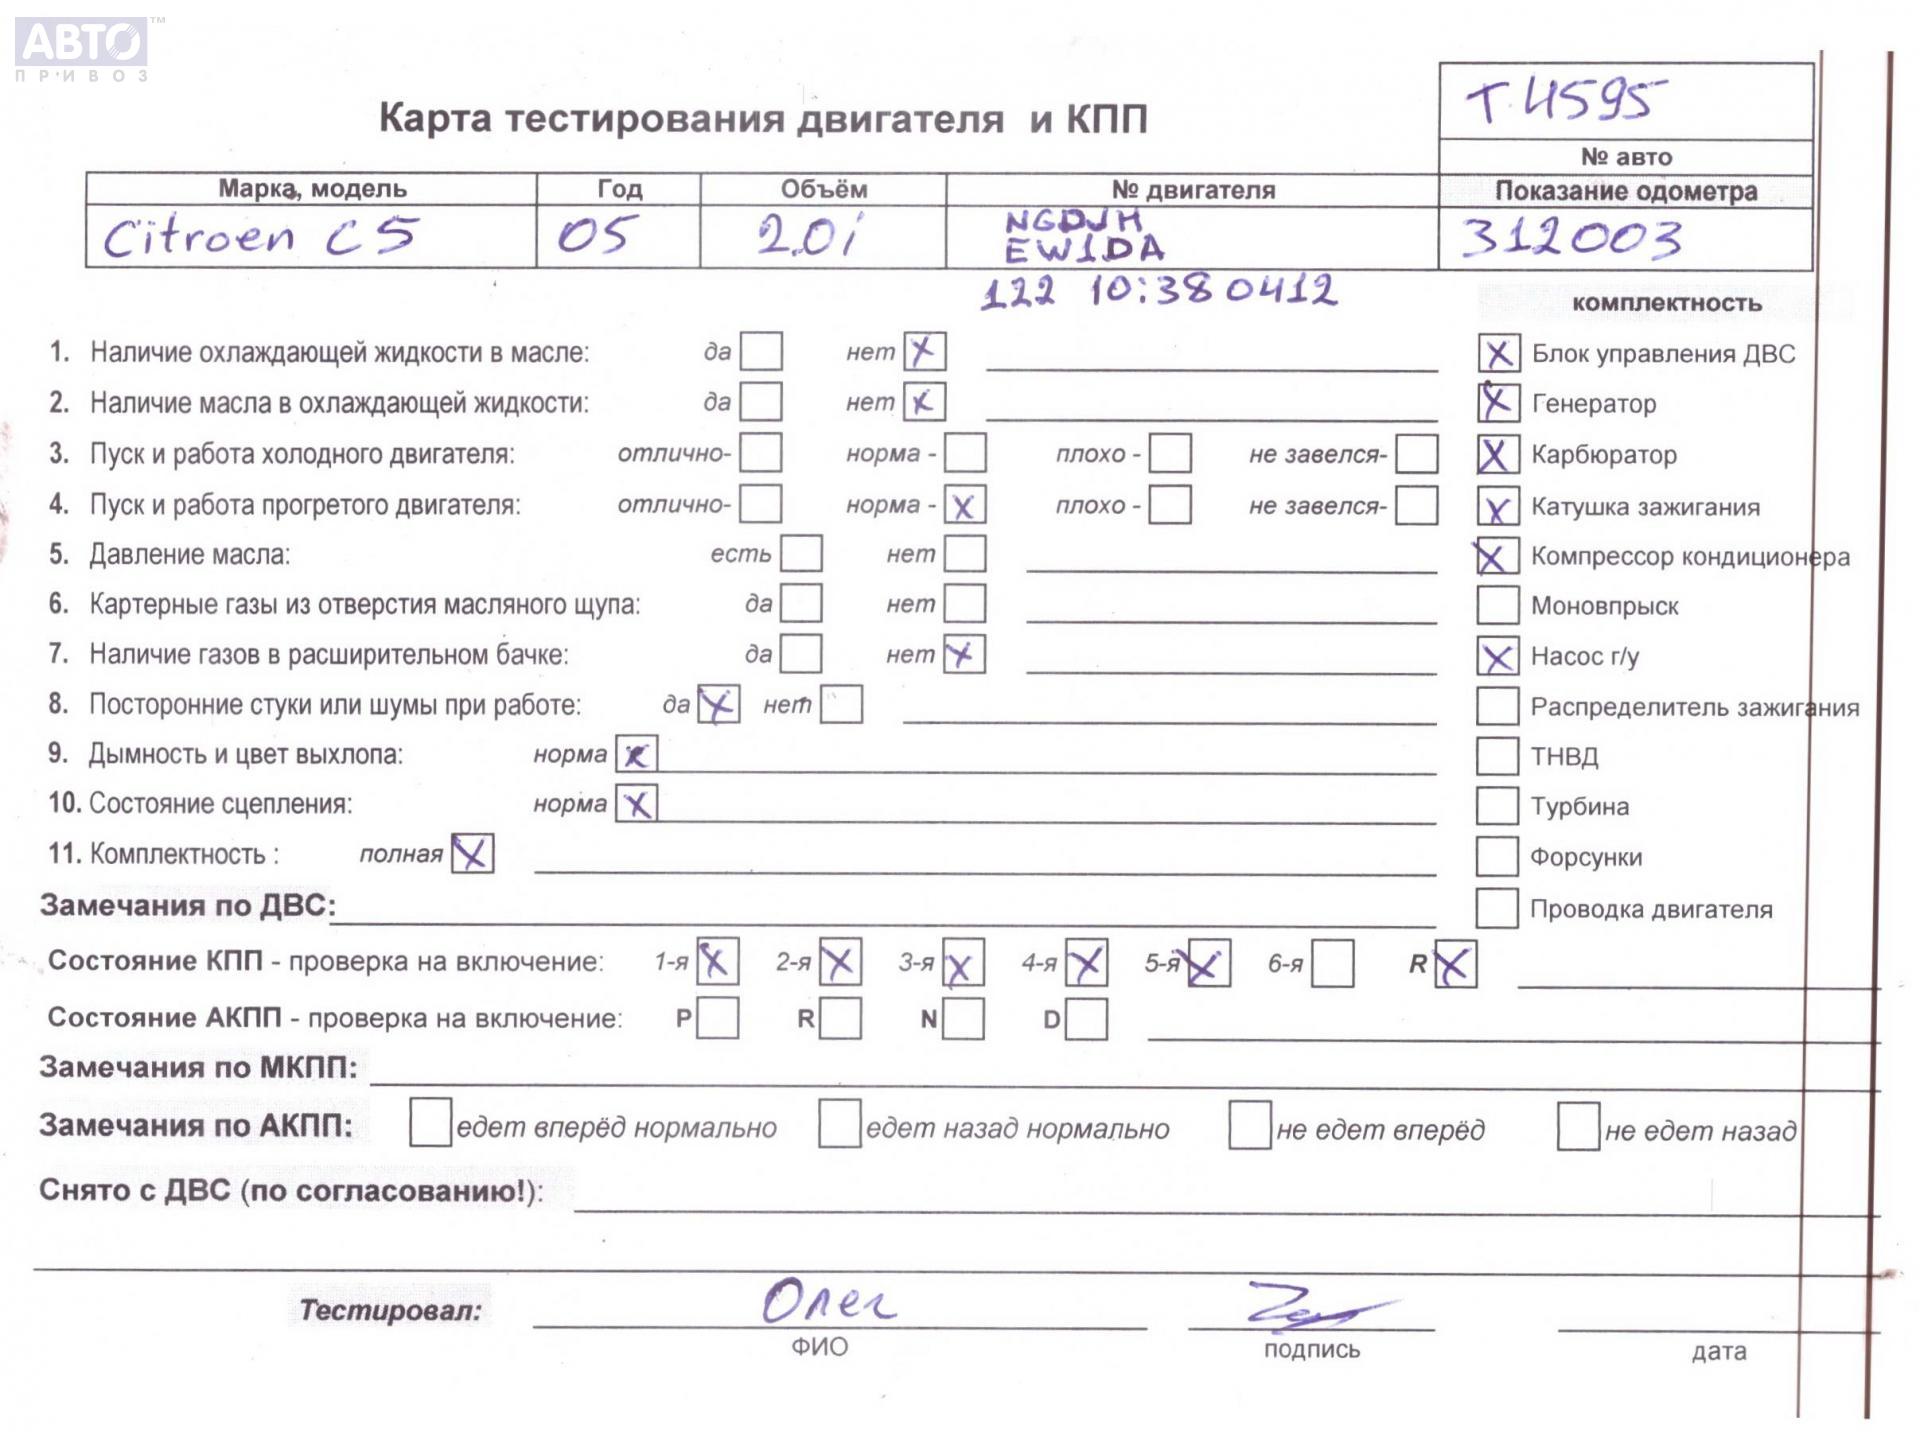 АВТО™
ПРИВОЗ
Т 4595
Карта тестирования двигателя и КПП
№ авто
Марка, модель Год Объём № двигателя Показание одометра
Citroen C5 05 2.0i NGDJH 312003
EW1DA
122 10:38 0412
комплектность
1. Наличие охлаждающей жидкости в масле: да нет X Блок управления ДВС X
2. Наличие масла в охлаждающей жидкости: да нет X Генератор X
3. Пуск и работа холодного двигателя: отлично- норма - плохо - не завелся- X Карбюратор
4. Пуск и работа прогретого двигателя: отлично- норма - X плохо - не завелся- X Катушка зажигания
5. Давление масла: есть нет X Компрессор кондиционера
6. Картерные газы из отверстия масляного щупа: да нет Моновпрыск
7. Наличие газов в расширительном бачке: да нет X X Насос г/у
8. Посторонние стуки или шумы при работе: да X нет Распределитель зажигания
9. Дымность и цвет выхлопа: норма X ТНВД
10. Состояние сцепления: норма X Турбина
11. Комплектность : полная X Форсунки
Замечания по ДВС: Проводка двигателя
Состояние КПП - проверка на включение: 1-я X 2-я X 3-я X 4-я X 5-я X 6-я R X
Состояние АКПП - проверка на включение: P R N D
Замечания по МКПП:
Замечания по АКПП: едет вперёд нормально едет назад нормально не едет вперёд не едет назад
Снято с ДВС (по согласованию!):
Тестировал: Олег
ФИО подпись дата